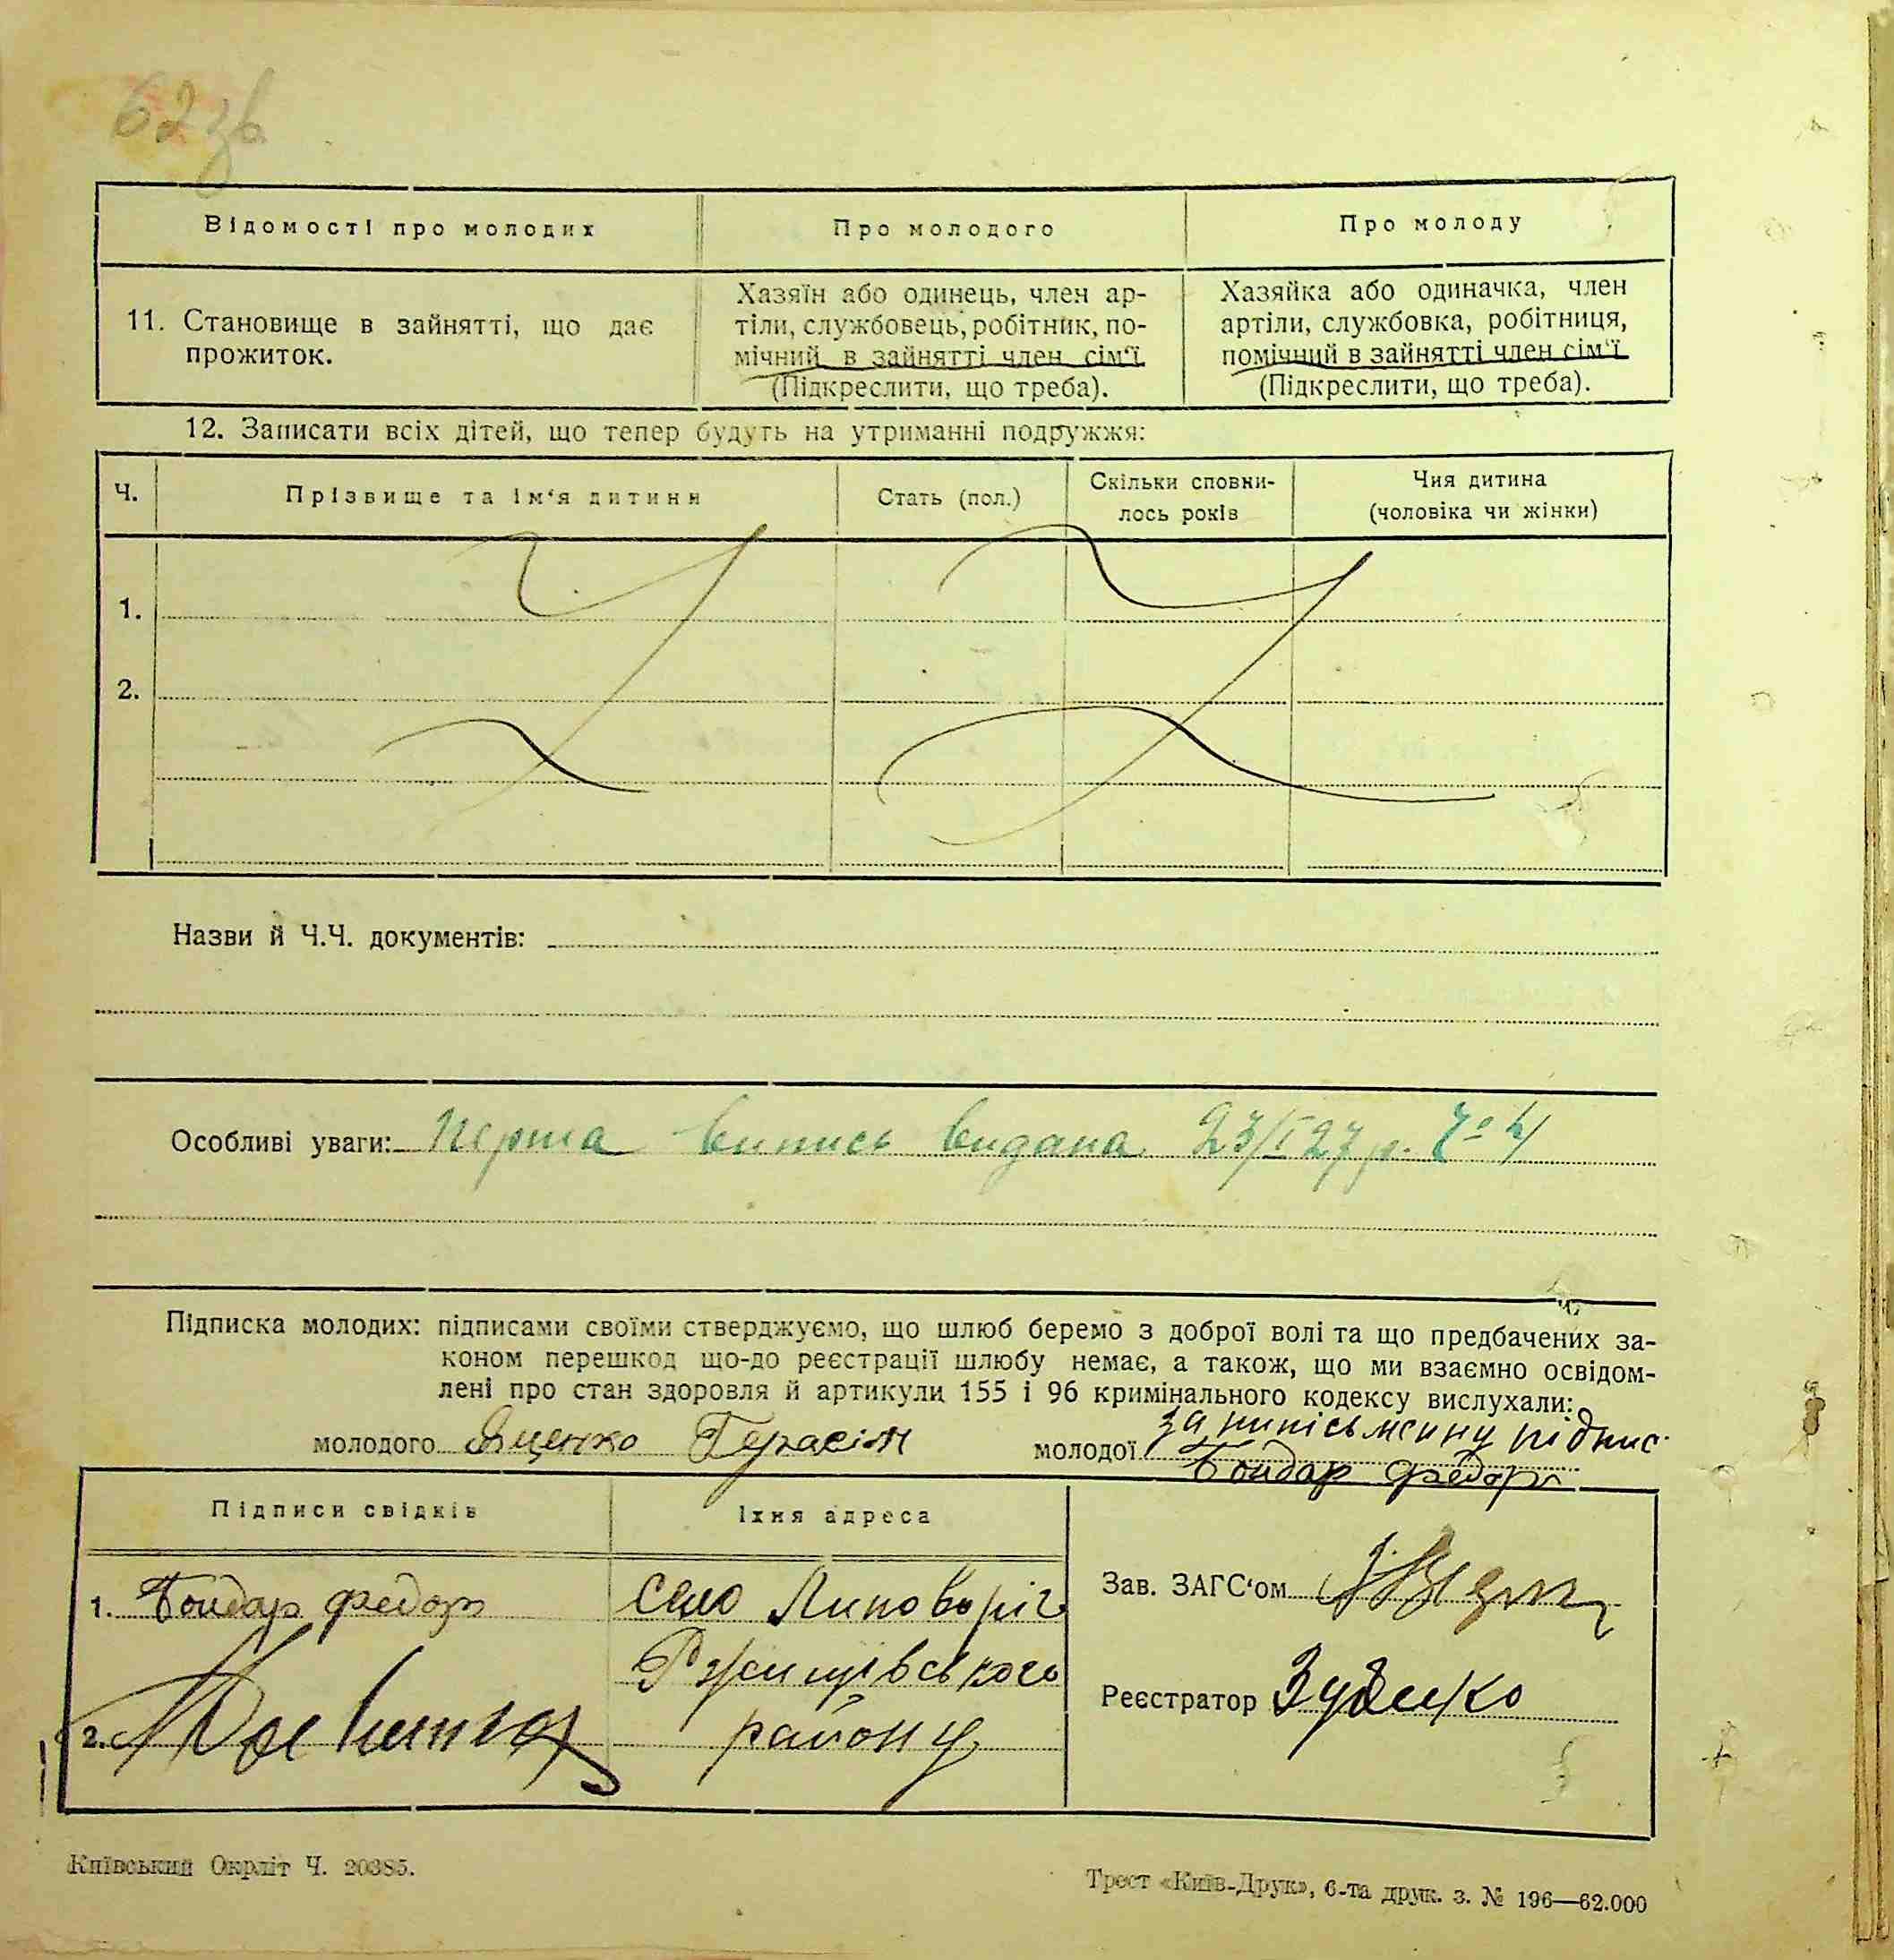 62зв
Відомості про молодих
Про молодого
Про молоду
11. Становище в зайнятті, що дає
прожиток.
Хазяїн або одинець, член ар-
тіли, службовець, робітник, по-
мічний в зайнятті член сім'ї
(Підкреслити, що треба).
Хазяйка або одиначка, член
артіли, службовка, робітниця,
помічний в зайнятті член сім'ї
(Підкреслити, що треба).
12. Записати всіх дітей, що тепер будуть на утриманні подружжя:
Ч.
Прізвище та ім'я дитини
Стать (пол.)
Скільки сповни-
лось років
Чия дитина
(чоловіка чи жінки)
1.
2.
Назви й Ч.Ч. документів:
Особливі уваги: Перша випись видана 23/I 27 р. 4
Підписка молодих: підписами своїми стверджуємо, що шлюб беремо з доброї волі та що предбачених за-
коном перешкод що-до реєстрації шлюбу немає, а також, що ми взаємно освідом-
лені про стан здоровля й артикули 155 і 96 кримінального кодексу вислухали:
молодого Яценко Герасім
молодої за нипісьменну підпис
Бондар Федор
Підписи свідків
Їхня адреса
1. Бондар Федор
село Липоворіг
Ржищівського
2.
району
Зав. ЗАГС'ом
Реєстратор Зубенко
Київський Окрліт Ч. 20385.
Трест «Київ-Друк», 6-та друк. з. № 196—62.000